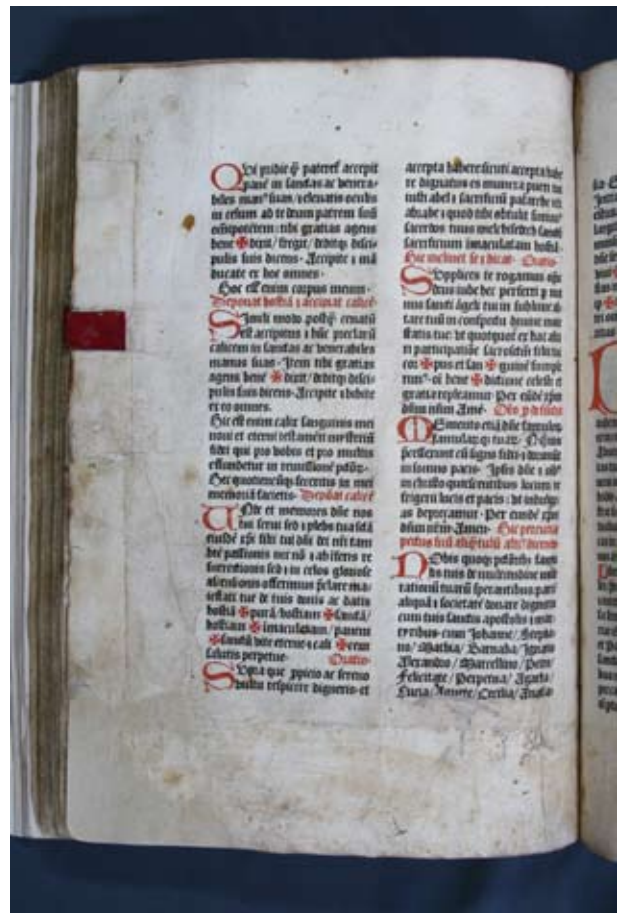 QUi pridie q̄ pateret᷑ accepit
panē in sanctas ac venera-
biles man⁹ suas/ elevatis oculis
in celum ad te deum patrem suū
oīpotētem: tibi gratias agens
bene ✠ dixit/ fregit/ deditq; disci-
pulis suis dicens. Accipite ⁊ mā
ducate ex hoc omnes.
Hoc est enim corpus meum.
Deponat hostiā ⁊ accipiat calicē
SImili modo postq̄ cenatū
est accipiens ⁊ hūc preclarū
calicem in sanctas ac venerabiles
manus suas. Item tibi gratias
agens bene ✠ dixit/ deditq; disci-
pulis suis dicens. Accipite ⁊ bibite
ex eo omnes.
Hic est enim calix sanguinis mei
novi et eterni testamēti mysteriū
fidei qui pro vobis et pro multis
effundetur in remissionē pctōr̄.
Hec quotienscūq; feceritis in mei
memoriā facietis. Deponat calicē
VNde et memores dn̄e nos
tui servi sed ⁊ plebs tua sctā
eiusdē xp̄i filii tui dn̄i dei nr̄i tam
btē passionis nec nō ⁊ ab inferis re
surrectionis sed ⁊ in celos gloriose
ascensionis offerimus p̄clare ma-
iestati tue de tuis donis ac datis
hostiā ✠ purā/ hostiam ✠ sanctā/
hostiam ✠ immaculatam/ panem
✠ sanctū vite eterne ⁊ cali ✠ cem
salutis perpetue. Oratio
SUpra que ppicio ac sereno
vultu respicere digneris et
accepta habere sicuti accepta habe
re dignatus es munera pueri tui
iusti abel ⁊ sacrificiū patriarche nr̄i
abrahe ⁊ quod tibi obtulit summus
sacerdos tuus melchisedech sanctū
sacrificium immaculatam hostiā.
Hic inclinet se ⁊ dicat. Oratio
SUpplices te rogamus oīps
deus iube hec perferri p man
mus sancti āgeli tui in sublime al
tare tuū in conspectu divine maie
statis tue: vt quotquot ex hac alta
ri participatiōe sacrosctm̄ filii tui
cor ✠ pus et san ✠ guinē sumpse
rim⁹. oī bene ✠ dictione celesti et
gratia repleamur. Per eūdē xp̄m
dn̄m nr̄m Amē.
MEmento etiā dn̄e famulor̄
famularūq; tuar̄
precesserunt cū signo fidei ⁊ dormiūt
in somno pacis. Ipsis dn̄e ⁊ oīb⁹
in christo quiescentibus locum re
frigerii lucis et pacis: vt indulge
as deprecamur. Per eundē xp̄m
dn̄m nr̄m. Amen. Hic percutiat
NObis quoq; pctōrib; famu
lis tuis de multitudine mise
rationū tuarū sperantibus partē
aliquā ⁊ societatē donare digneris
cum tuis sanctis apostolis ⁊ mar
tyribus: cum Johanne/ Stepha
no/ Mathia/ Barnaba/ Ignatio
Alexandro/ Marcellino/ Petro/
Felicitate/ Perpetua/ Agatha/
Lucia/ Agnete/ Cecilia/ Anasta-